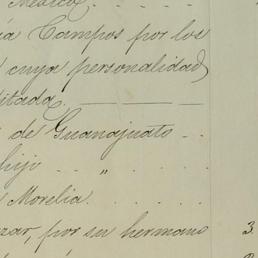 Mexico. . . . .
ia Campos por los
cuya personalidad
itada,
de Guanajuato . .
hijo . . " . .
Morelia. . . . . .
zar, por su hermano 3